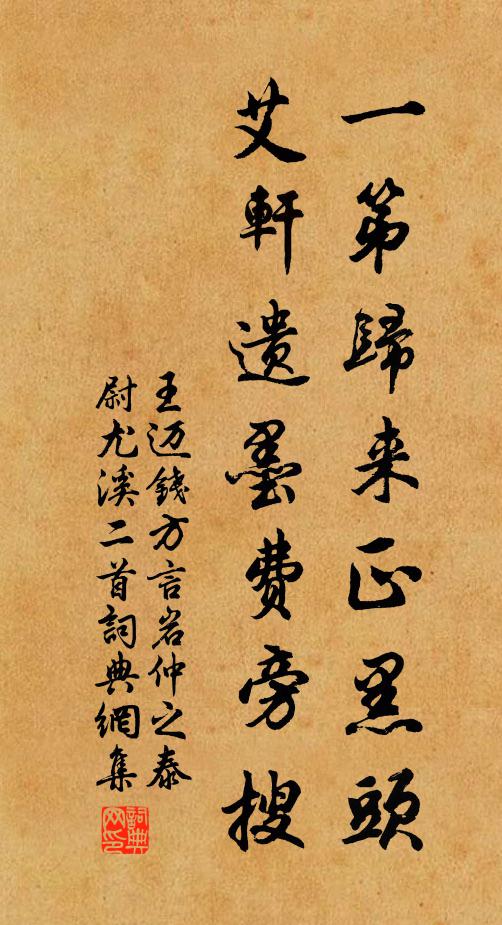 一第歸来正黑頭
艾軒遺墨費旁搜
王迈錢方言岩仲之泰
尉尤溪二首詞典網集
詞典网印